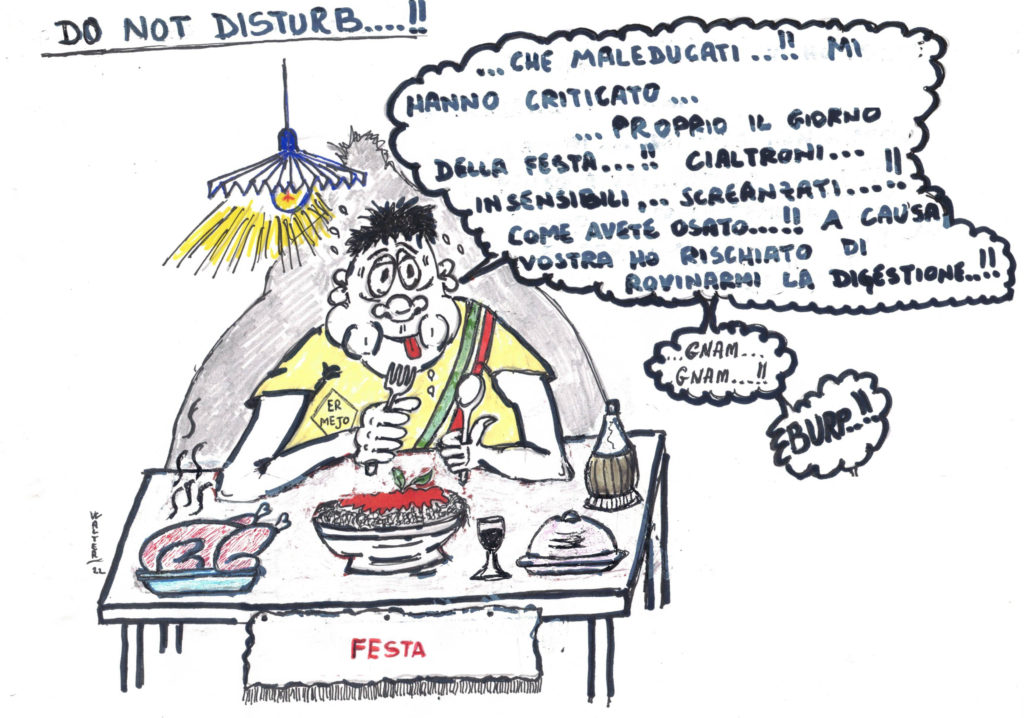 DO NOT DISTURB....!!
...CHE MALEDUCATI..!! MI
HANNO CRITICATO...
... PROPRIO IL GIORNO
DELLA FESTA...!! CIALTRONI...
INSENSIBILI,.. SCREANZATI....!!
COME AVETE OSATO...!! A CAUSA
VOSTRA HO RISCHIATO DI
ROVINARMI LA DIGESTIONE..!!
...GNAM...
GNAM...!!
BURP...!!
ER
MEJO
WALTER/22
FESTA